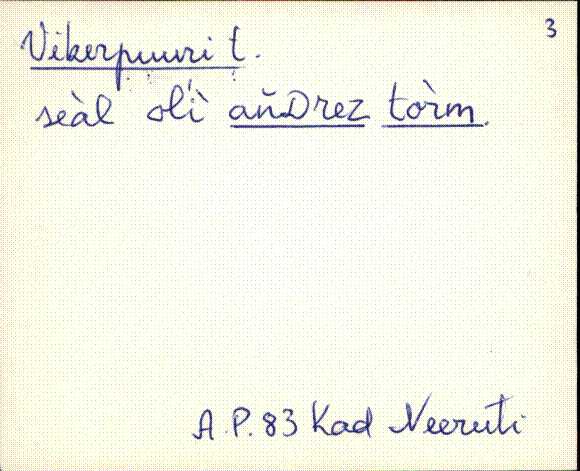 3
Vikerpuuri t.
seàl olì aňDrez tòrm.
A.P. 83 Kad Neeruti